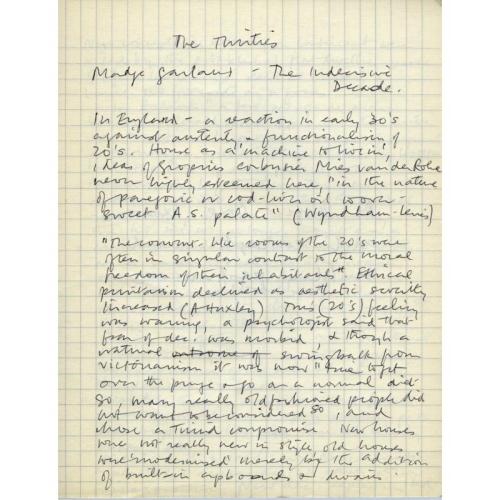 The Thirties
Madge Garland - The Indecisive
Decade.
In England - a reaction in early 30's
against austerity & functionalism of
20's. House as a 'machine to live in',
ideas of Gropius Corbusier Mies van der Rohe
never highly esteemed here, "in the nature
of paregoric or cod-liver oil to over-
sweet A.S. palate" (Wyndham-Lewis)
"The convent-like rooms of the 20's were
often in singular contrast to the moral
freedom of their inhabitants". Ethical
puritanism declined as aesthetic severity
increased (A Huxley) This (20's) feeling
was waning, a psychologist said that
fear of dec. was morbid, & though a
natural outcome of swing back from
victorianism it was now "time to get
over the purge & go on a normal diet"
So, many really old fashioned people did
not want to be considered so, and
chose a timid compromise New houses
were not really new in style old houses
were 'modernised' merely by the addition
of built-in cupboards & divans.